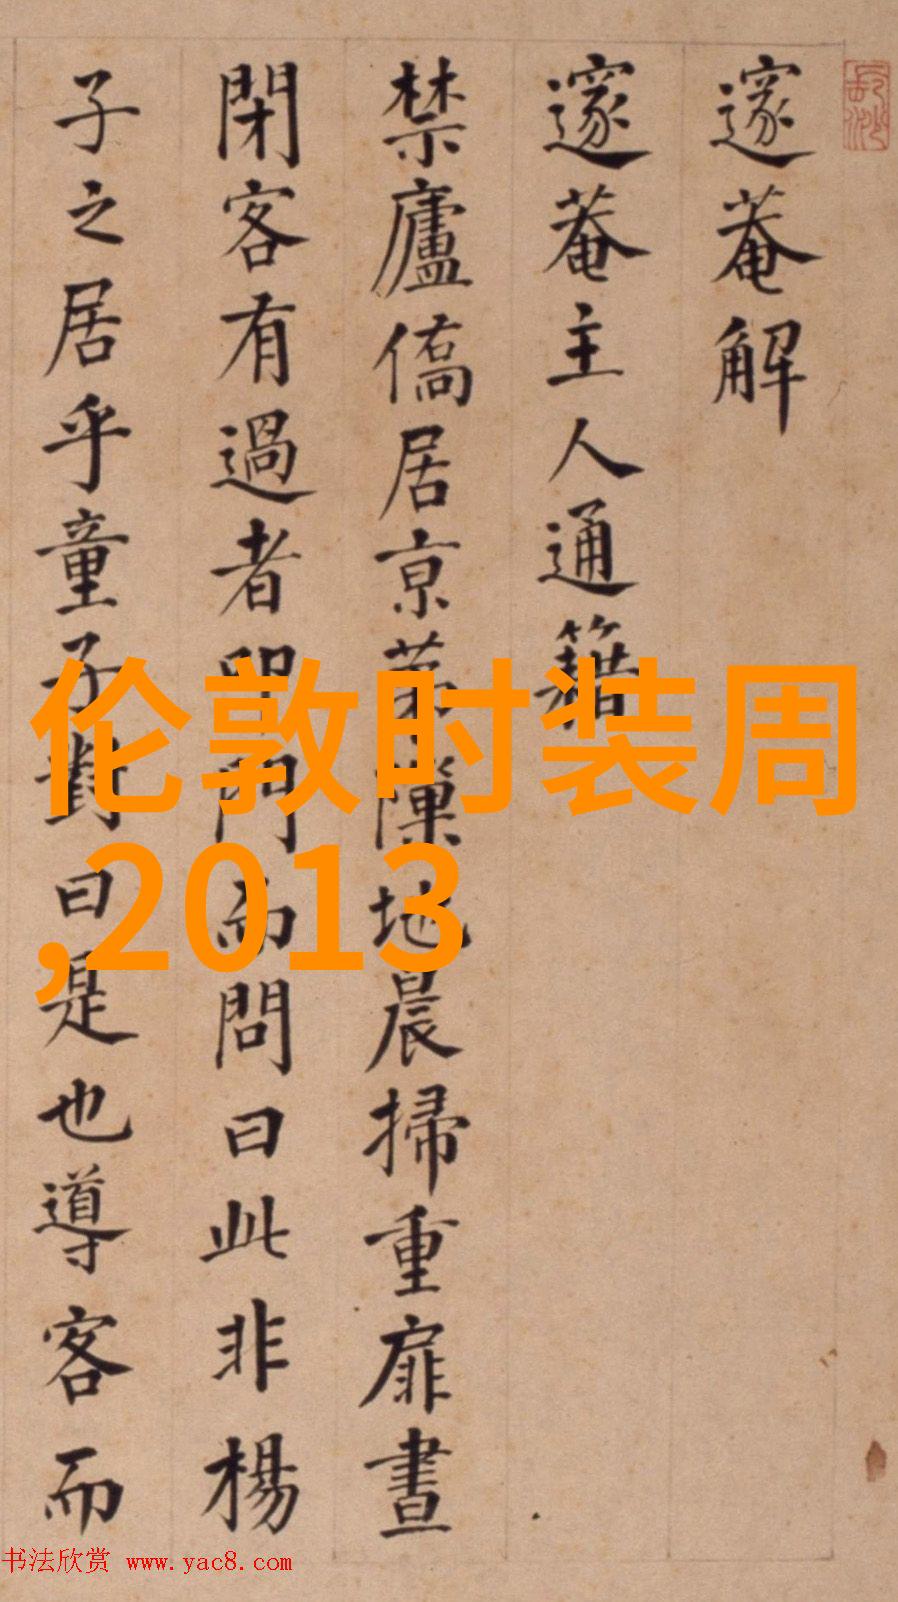 邃菴解
邃菴主人通籍
禁廬僑居京第隟地晨掃重扉晝
閉客有過者叩門而問曰此非楊
子之居乎童子對曰是也導客而
伦敦时装周
,2013
书法欣赏 www.yac8.com